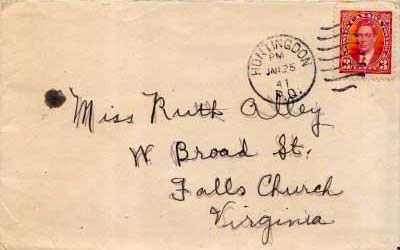 HUNTINGDON
PM
JAN 25
41
P.Q.
CANADA
3 3
Miss Ruth Alley
W Broad St.
Falls Church
Virginia